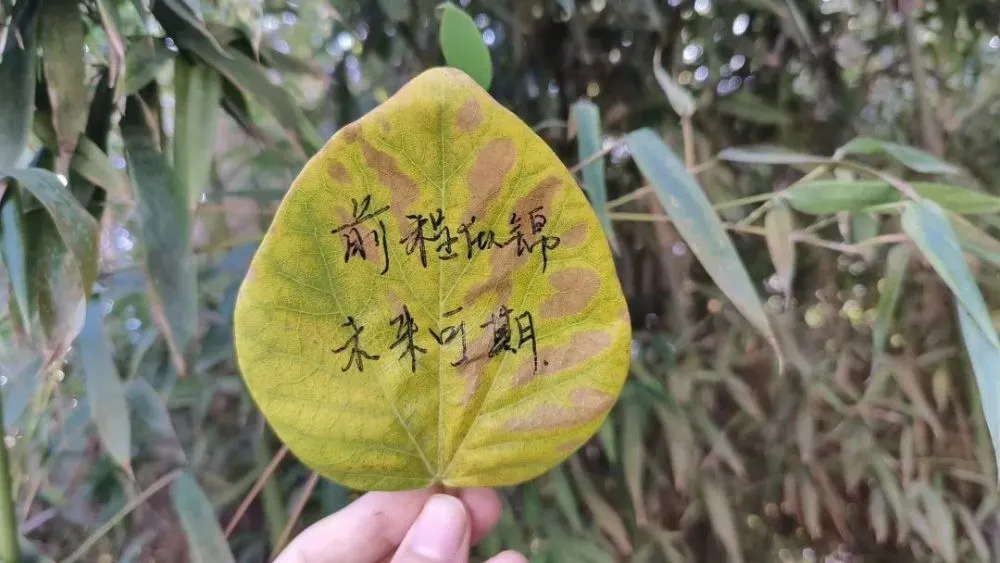 前程似锦
未来可期.